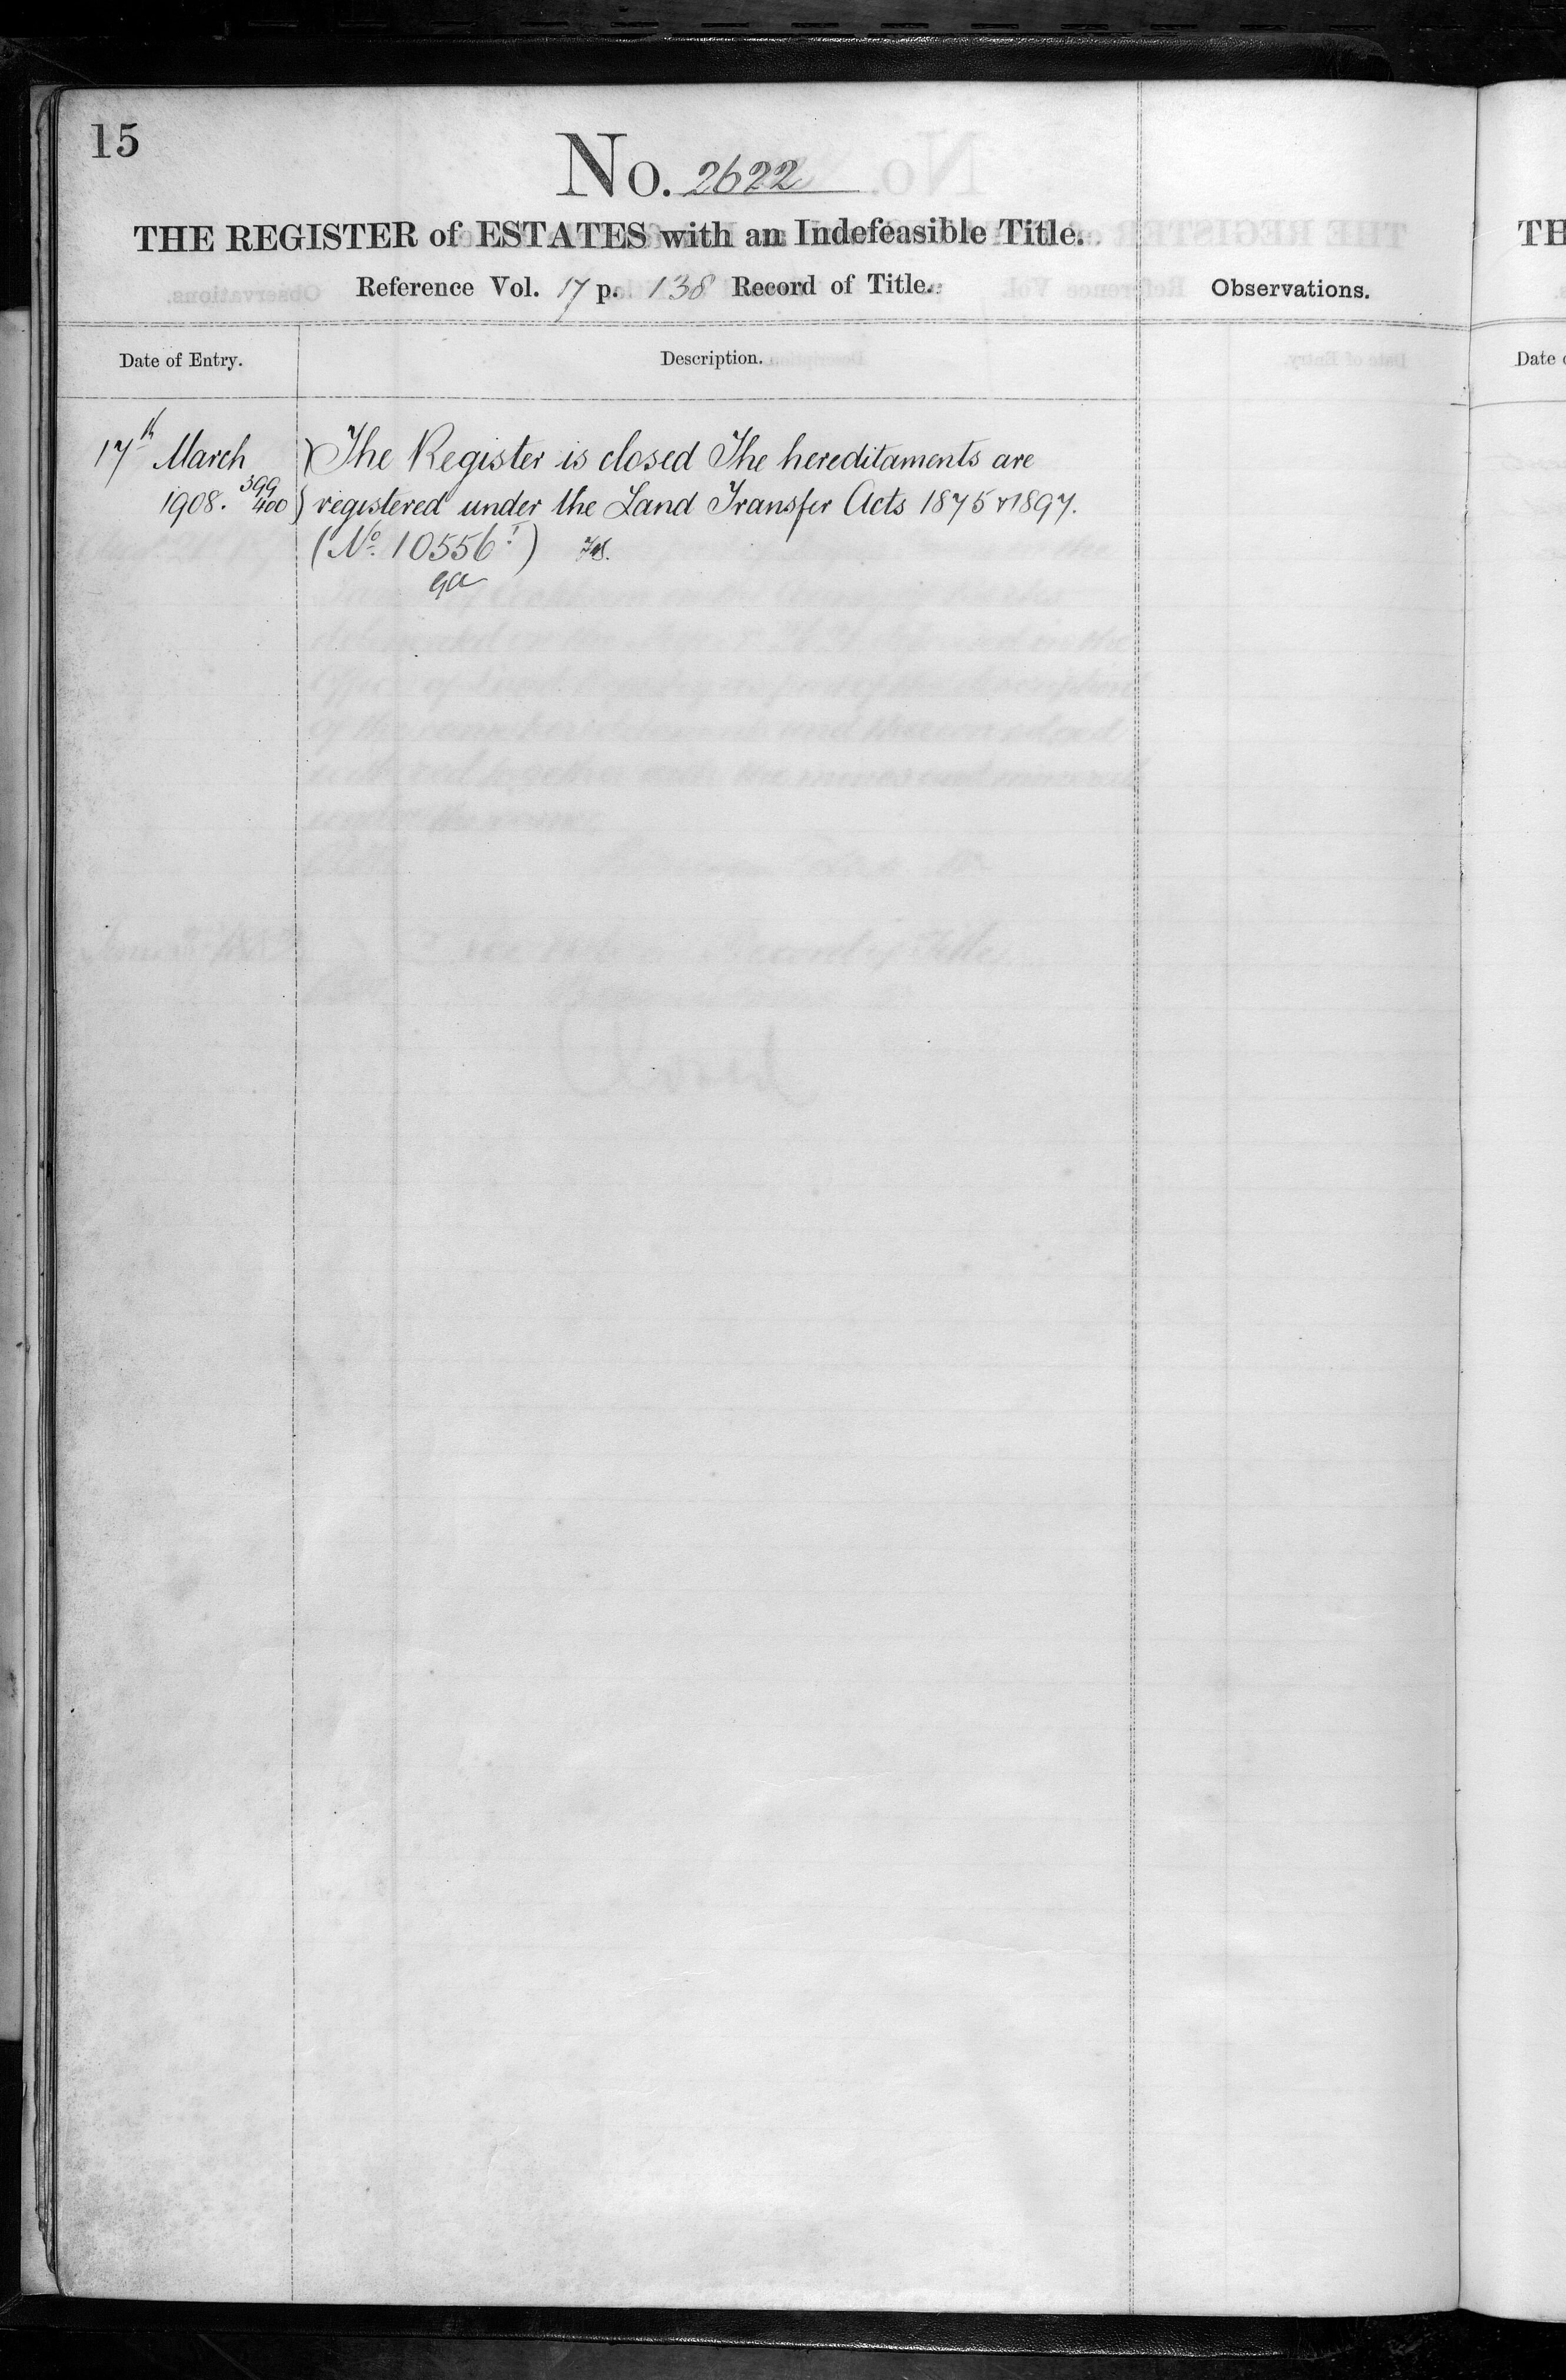 15
No. 2622
THE REGISTER of ESTATES with an Indefeasible Title.
Reference Vol. 17 p. 138 Record of Title.
Observations.
Date of Entry.
Description.
17th March
1908. 399
400
The Register is closed The hereditaments are
registered under the Land Transfer Acts 1875 & 1897.
(No. 10556)
TH
Date